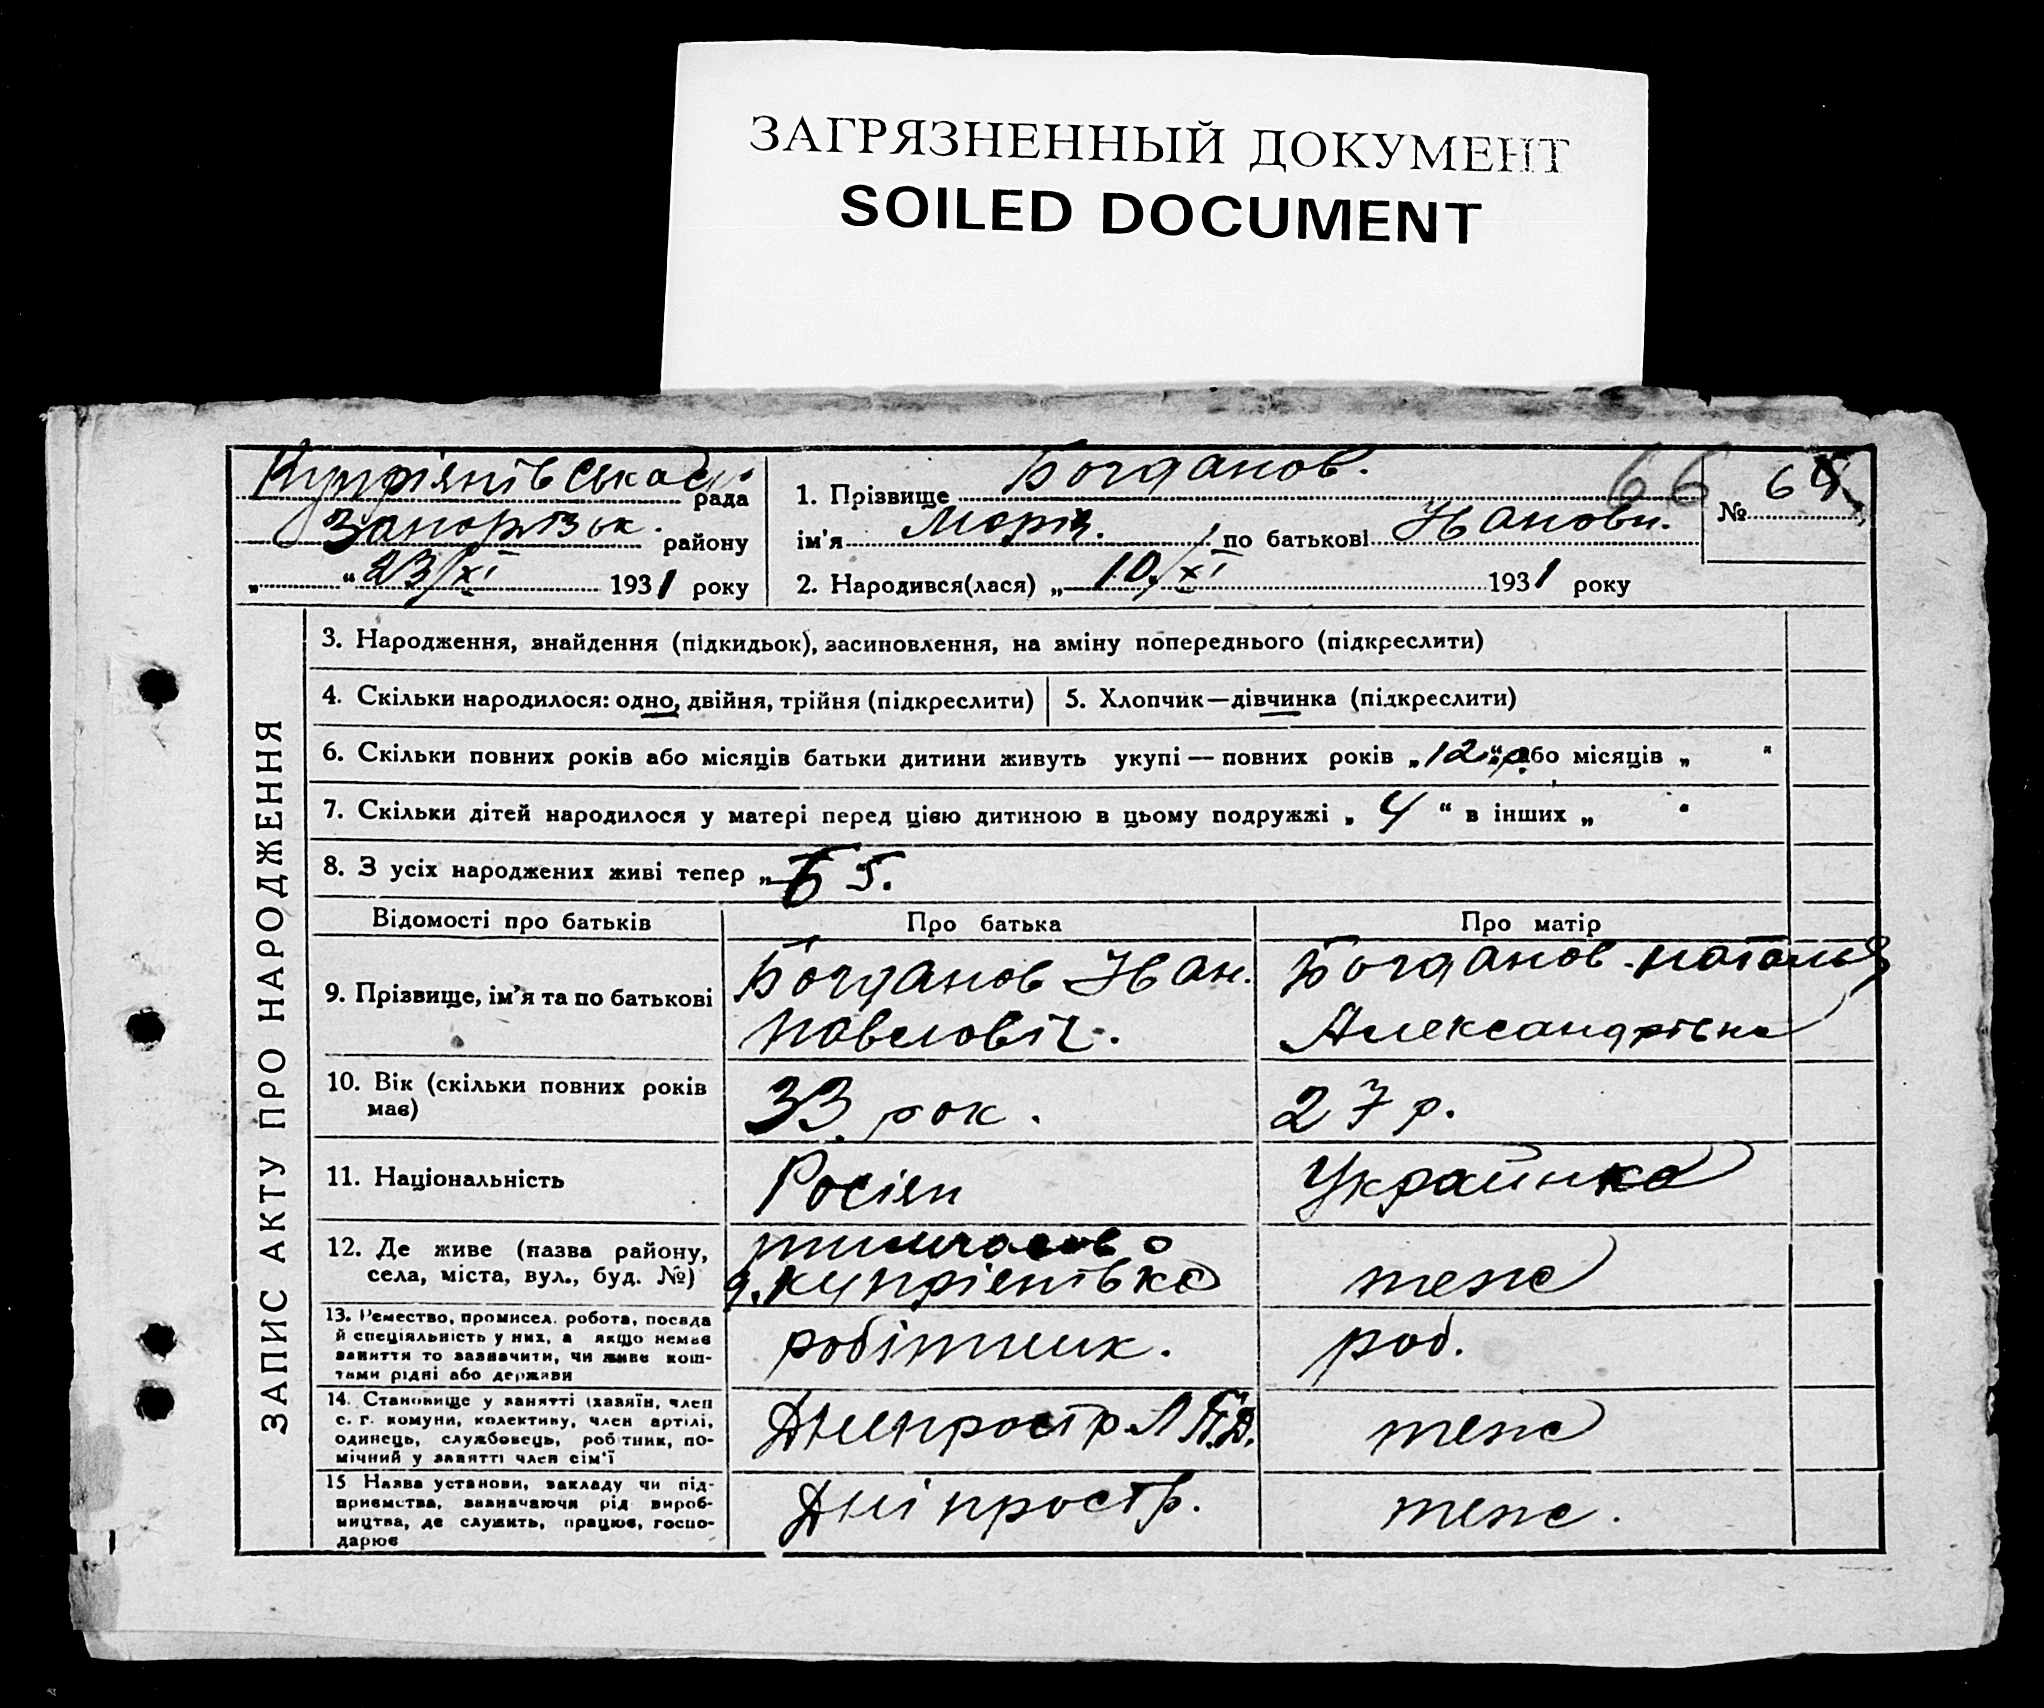 ЗАГРЯЗНЕННЫЙ ДОКУМЕНТ
SOILED DOCUMENT
Купріянівська рада
Запорізьк. району
„ “ 23/XI 1931 року
1. Прізвище Богданов. 66
ім'я Марія. по батькові Ивановн.
№ 64
2. Народився(лася) „ 10/XI 1931 року
ЗАПИС АКТУ ПРО НАРОДЖЕННЯ
3. Народження, знайдення (підкидьок), засиновлення, на зміну попереднього (підкреслити)
4. Скільки народилося: одно, двійня, трійня (підкреслити)
5. Хлопчик—дівчинка (підкреслити)
6. Скільки повних років або місяців батьки дитини живуть укупі — повних років „ 12 р. “ або місяців „ “
7. Скільки дітей народилося у матері перед цією дитиною в цьому подружжі „ 4 “ в інших „ “
8. З усіх народжених живі тепер „ 5.
Відомості про батьків
Про батька
Про матір
9. Прізвище, ім'я та по батькові
Богданов Иван.
Павловіч.
Богданов Наталья
Александрівна
10. Вік (скільки повних років
має)
33 рок.
27 р.
11. Національність
Росіян
Украинка
12. Де живе (назва району,
села, міста, вул., буд. №)
тимчасово
д. Купріенівка
теж
13. Ремество, промисел. робота, посада
й спеціяльність у них, а якщо немає
заняття то зазначити, чи живе кош-
тами рідні або держави
робітник.
роб.
14. Становище у занятті (хазяїн, член
с. г. комуни, колективу, член артілі,
одинець, службовець, робітник, по-
мічний у занятті член сім'ї
Днепростр
теж
15 Назва установи, закладу чи під-
приємства, зазначаючи рід вироб-
ництва, де служить, працює, госпо-
дарює
Дніпростр.
теж.